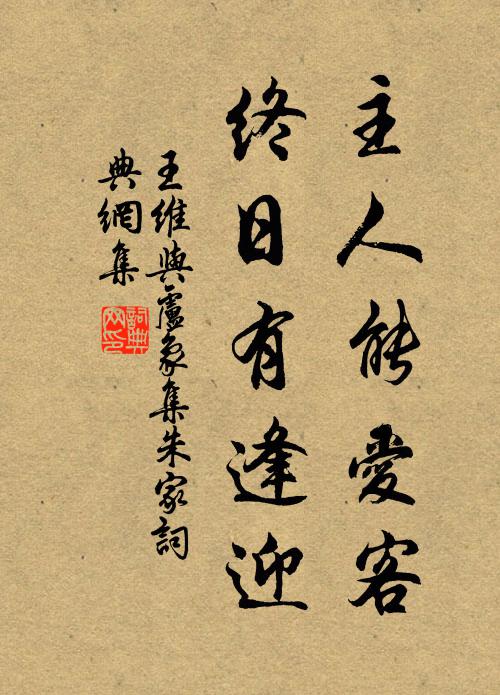 主人能愛客
終日有逢迎
王維與盧象集朱家詞
典網集
詞典網印